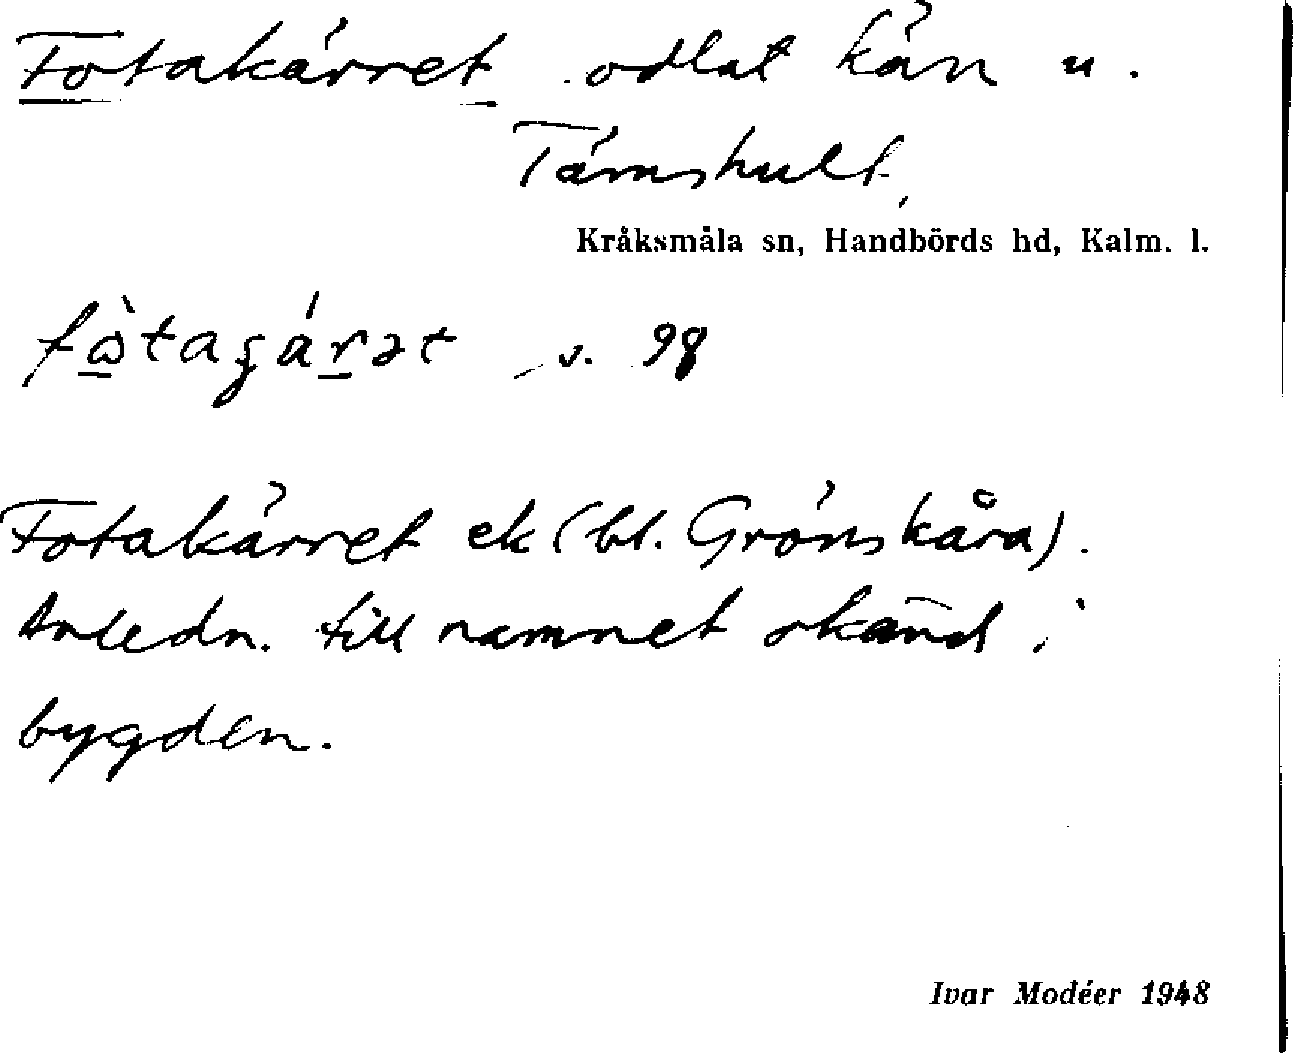 Fotakärret odlat kärr u.
Tärnshult,
Kråksmåla sn, Handbörds hd, Kalm. l.
v. 98
Fotakärret ek (bl. Grönskåra).
Anledn. till namnet okänd i
bygden.
Ivar Modéer 1948